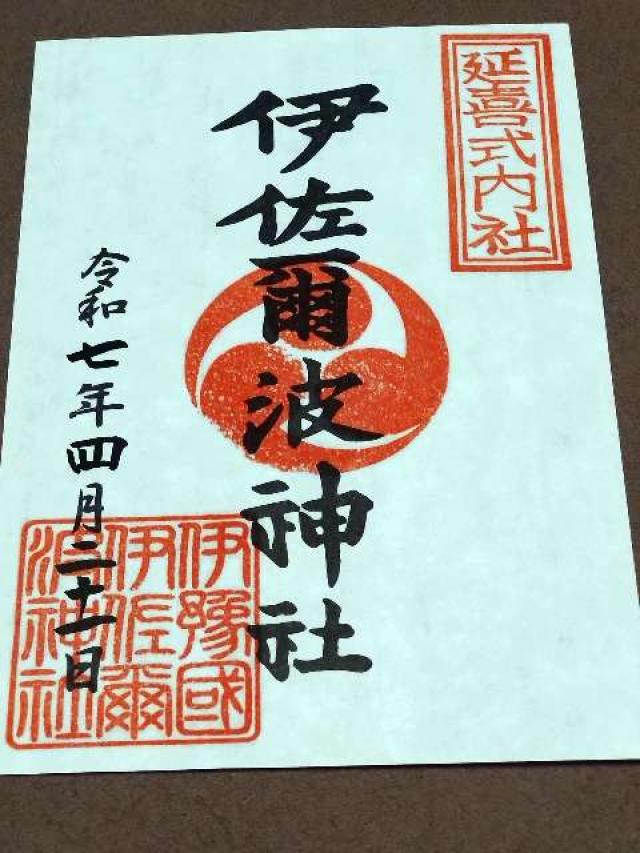 延喜式内社
伊佐爾波神社
令和七年四月二十一日
伊豫國
伊佐爾
波神社